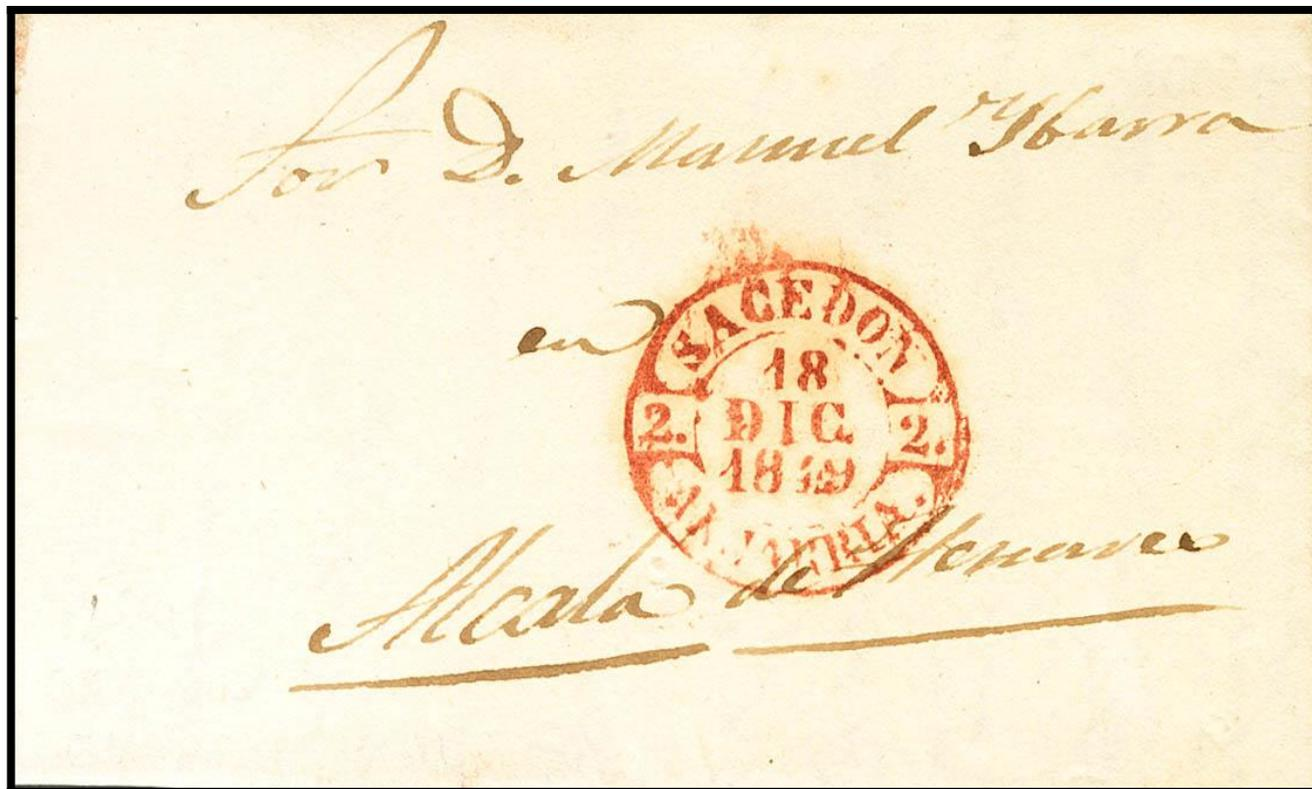 Sor D. Manuel Ybarra
en
SACEDON
18
DIC.
1849
2. 2.
Alcala de Henares